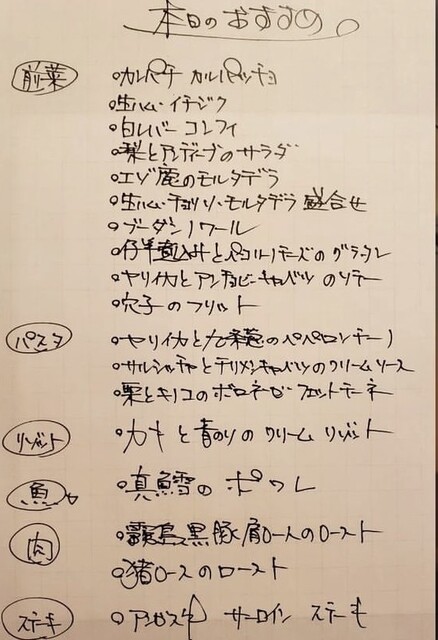 本日のおすすめ
前菜
カンパチ カルパッチョ
生ハム・イチジク
白レバー コンフィ
梨とアンディーブのサラダ
エゾ鹿のモルタデラ
生ハム・チョリソ・モルタデラ 盛合せ
ブーダンノワール
仔羊煮込みとペコリーノチーズのグラタン
ヤリイカとアンチョビーキャベツのソテー
穴子のフリット
パスタ
ヤリイカと九条葱のペペロンチーノ
サルシッチャとチリメンキャベツのクリームソース
栗とキノコのボロネーゼ フェットチーネ
リゾット
カキと青のりのクリームリゾット
魚
真鱈のポワレ
肉
霧島黒豚肩ロースのロースト
猪ロースのロースト
ステーキ
アンガス牛 サーロイン ステーキ